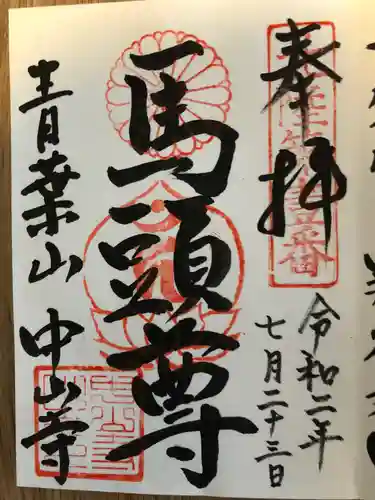 奉拝
令和二年
七月二十三日
馬頭尊
青葉山
中山寺